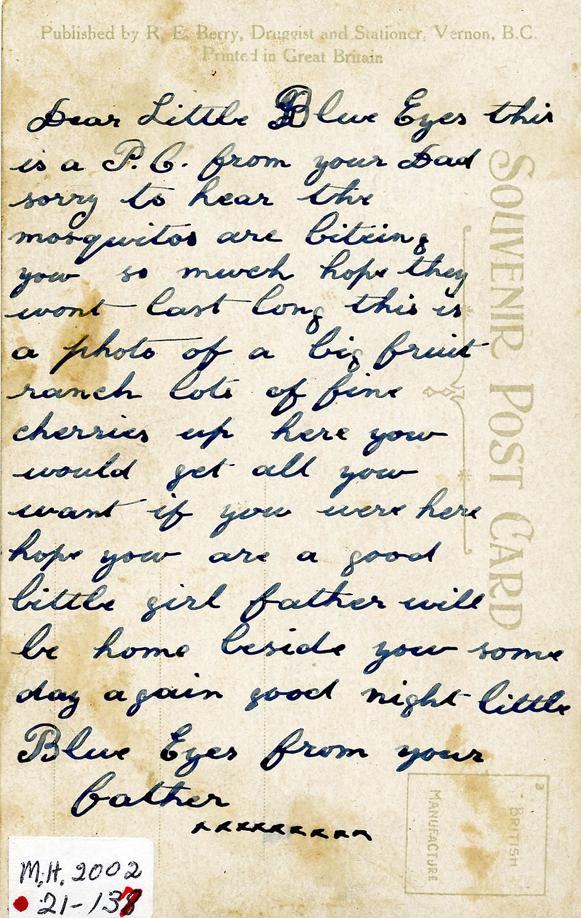 Published by R. E. Berry, Druggist and Stationer, Vernon, B.C.
Printed in Great Britain
Dear Little Blue Eyes this
is a P.C. from your Dad
sorry to hear the
mosquitos are biteing
you so much hope they
wont last long this is
a photo of a big fruit
ranch lots of fine
cherries up here you
would get all you
want if you were here
hope you are a good
little girl father will
be home beside you some
day again good night little
Blue Eyes from your
father
xxxxxxxxx
SOUVENIR POST CARD
BRITISH
MANUFACTURE
M.H. 2002
21-138